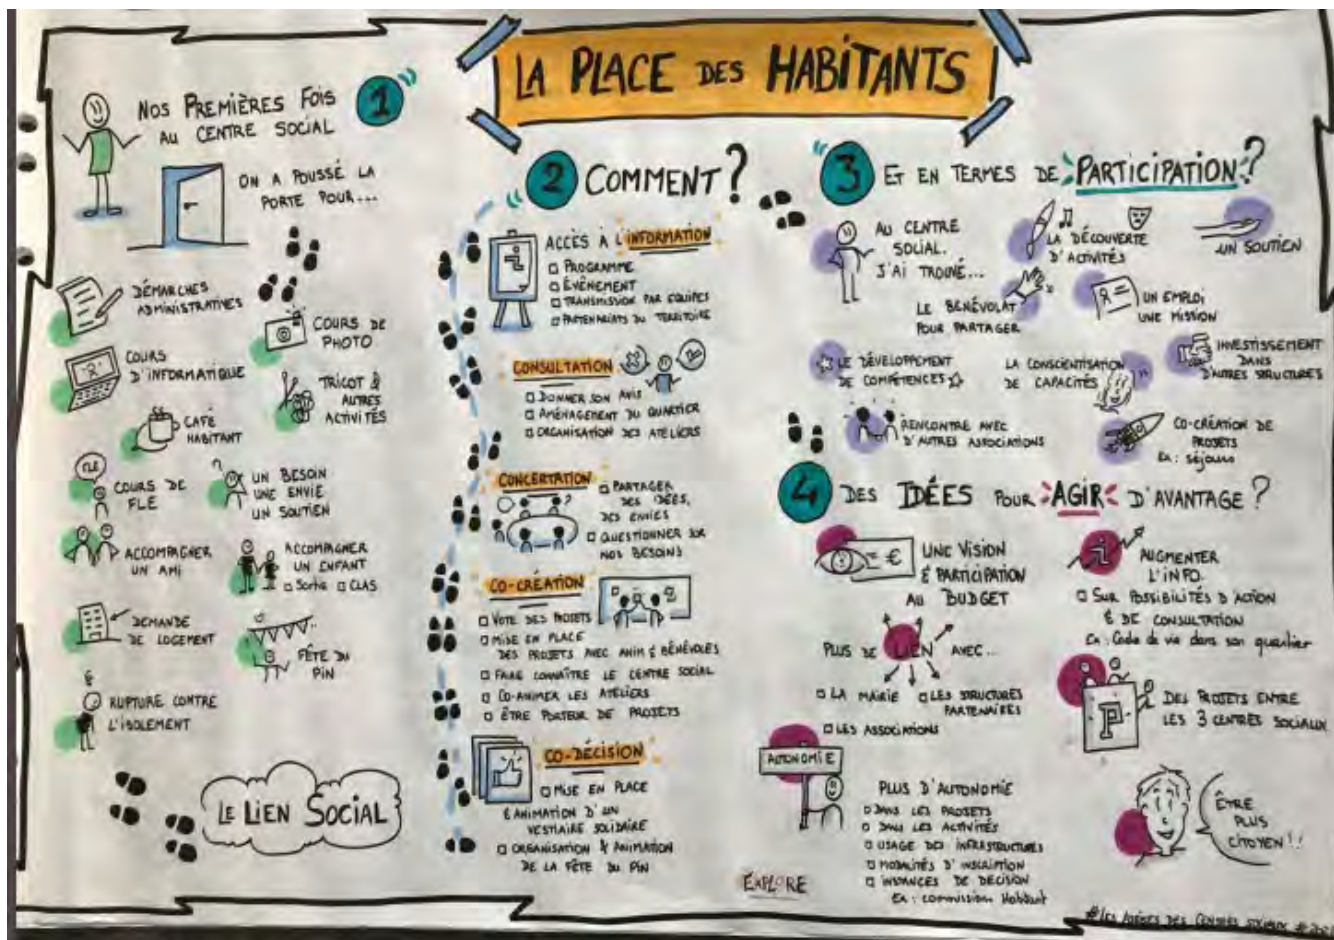 LA PLACE DES HABITANTS
1
NOS PREMIÈRES FOIS
AU CENTRE SOCIAL
ON A POUSSÉ LA
PORTE POUR...
DÉMARCHES
ADMINISTRATIVES
COURS DE
PHOTO
COURS
D'INFORMATIQUE
TRICOT &
AUTRES
ACTIVITÉS
CAFÉ
HABITANT
FLE
COURS DE
FLE
UN BESOIN
UNE ENVIE
UN SOUTIEN
ACCOMPAGNER
UN AMI
ACCOMPAGNER
UN ENFANT
Sortie CLAS
DEMANDE
DE LOGEMENT
FÊTE DU
PIN
RUPTURE CONTRE
L'ISOLEMENT
LE LIEN SOCIAL
2 COMMENT?
ACCÈS À L'INFORMATION
PROGRAMME
ÉVÈNEMENT
TRANSMISSION PAR EQUIPES
PARTENARIATS DU TERRITOIRE
CONSULTATION
DONNER SON AVIS
AMÉNAGEMENT DU QUARTIER
ORGANISATION DES ATELIERS
CONCERTATION
PARTAGER
DES IDÉES,
DES ENVIES
QUESTIONNER SUR
NOS BESOINS
CO-CRÉATION
VOTE DES PROJETS
MISE EN PLACE
DES PROJETS AVEC ANIM & BÉNÉVOLES
FAIRE CONNAÎTRE LE CENTRE SOCIAL
CO-ANIMER LES ATELIERS
ÊTRE PORTEUR DE PROJETS
CO-DÉCISION
MISE EN PLACE
& ANIMATION D'UN
VESTIAIRE SOLIDAIRE
ORGANISATION & ANIMATION
DE LA FÊTE DU PIN
3 ET EN TERMES DE PARTICIPATION?
AU CENTRE
SOCIAL.
J'AI TROUVÉ...
LA DÉCOUVERTE
D'ACTIVITÉS
UN SOUTIEN
LE BÉNÉVOLAT
POUR PARTAGER
UN EMPLOI
UNE MISSION
LE DÉVELOPPEMENT
DE COMPÉTENCES
LA CONSCIENTISATION
DE CAPACITÉS
INVESTISSEMENT
DANS
D'AUTRES STRUCTURES
RENCONTRE AVEC
D'AUTRES ASSOCIATIONS
CO-CRÉATION DE
PROJETS
Ex : séjours
4 DES IDÉES POUR AGIR D'AVANTAGE?
= €
UNE VISION
& PARTICIPATION
AU BUDGET
AUGMENTER
L'INFO.
SUR POSSIBILITÉS D'ACTION
& DE CONSULTATION
Ex : Code de vie dans son quartier
PLUS DE LIEN AVEC...
LA MAIRIE
LES STRUCTURES
PARTENAIRES
LES ASSOCIATIONS
P
DES PROJETS ENTRE
LES 3 CENTRES SOCIAUX
AUTONOMIE
PLUS D'AUTONOMIE
DANS LES PROJETS
DANS LES ACTIVITÉS
USAGE DES INFRASTRUCTURES
MODALITÉS D'INSCRIPTION
INSTANCES DE DÉCISION
Ex : commission Habitant
ÊTRE
PLUS
CITOYEN!!
EXPLORE
DES CENTRES SOCIAUX